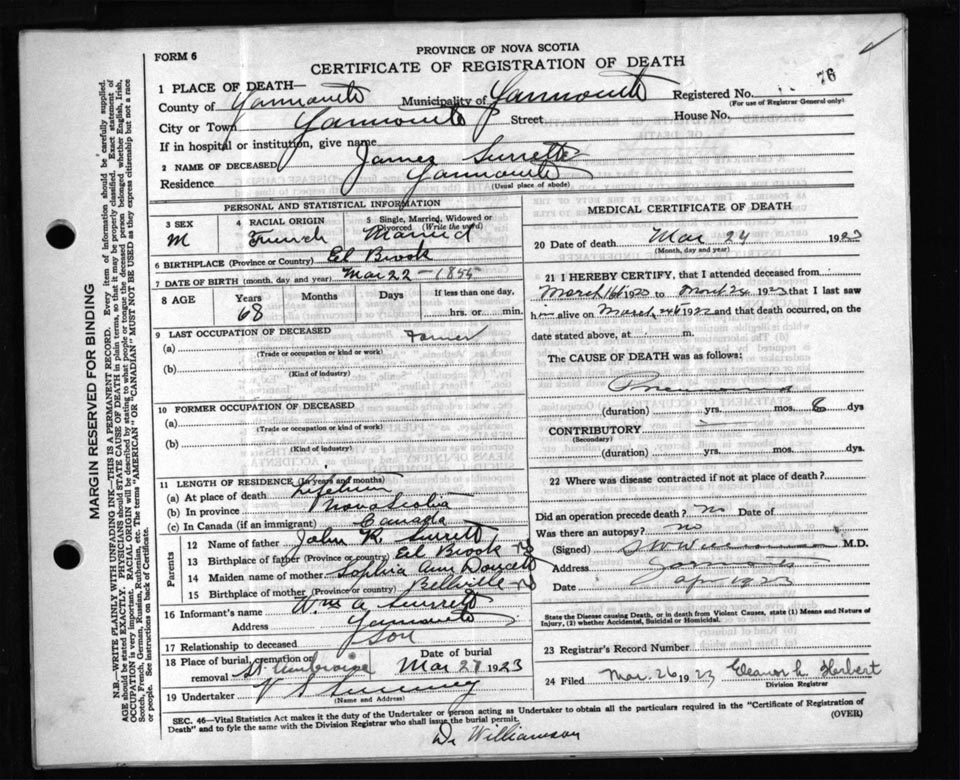 PROVINCE OF NOVA SCOTIA
FORM 6
CERTIFICATE OF REGISTRATION OF DEATH
76
1 PLACE OF DEATH—
County of Yarmouth Municipality of Yarmouth Registered No.
(For use of Registrar General only)
City or Town Yarmouth Street House No.
If in hospital or institution, give name
2 NAME OF DECEASED James Surrette
Residence Yarmouth
(Usual place of abode)
PERSONAL AND STATISTICAL INFORMATION
3 SEX M
4 RACIAL ORIGIN French
5 Single, Married, Widowed or Divorced (Write the word) Married
6 BIRTHPLACE (Province or Country) El Brook
7 DATE OF BIRTH (month, day and year) Mar 22 - 1855
8 AGE Years Months Days If less than one day,
68 hrs. or min.
9 LAST OCCUPATION OF DECEASED
(a) Farmer
(Trade or occupation or kind or work)
(b)
(Kind of industry)
10 FORMER OCCUPATION OF DECEASED
(a)
(Trade or occupation or kind of work)
(b)
(Kind of industry)
11 LENGTH OF RESIDENCE (In years and months)
(a) At place of death Lifetime
(b) In province Nova Scotia
(c) In Canada (if an immigrant) Canada
Parents
12 Name of father John R. Surrett
13 Birthplace of father (Province or country) Eel Brook NS
14 Maiden name of mother Sophia Ann Doucett
15 Birthplace of mother (Province or country) Bellville NS
16 Informant's name Wm A Surrett
Address Yarmouth
17 Relationship to deceased Son
18 Place of burial, cremation or removal St. Ambroise Date of burial Mar 27 1923
19 Undertaker V S Sweeney
(Name and Address)
MEDICAL CERTIFICATE OF DEATH
20 Date of death Mar 24 1923
(Month, day and year)
21 I HEREBY CERTIFY, that I attended deceased from
March 16th 1923 to March 24 1923 that I last saw
him alive on March 24th 1923 and that death occurred, on the
date stated above, at m.
The CAUSE OF DEATH was as follows:
Pneumonia
(duration) yrs. mos. 6 dys
CONTRIBUTORY
(Secondary)
(duration) yrs. mos. dys.
22 Where was disease contracted if not at place of death?
Did an operation precede death? No Date of
Was there an autopsy? No
(Signed) S W Williamson M.D.
Address Yarmouth
Date Apr 1923
State the Disease causing Death, or in death from Violent Causes, state (1) Means and Nature of
Injury, (2) whether Accidental, Suicidal or Homicidal.
23 Registrar's Record Number
24 Filed Mar. 26 1923 Eleanor L. Herbert
Division Registrar
SEC. 46—Vital Statistics Act makes it the duty of the Undertaker or person acting as Undertaker to obtain all the particulars required in the "Certificate of Registration of
Death" and to fyle the same with the Division Registrar who shall issue the burial permit. (OVER)
Dr Williamson
MARGIN RESERVED FOR BINDING
N.B.—WRITE PLAINLY WITH UNFADING INK—THIS IS A PERMANENT RECORD. Every item of information should be carefully supplied.
AGE should be stated EXACTLY. PHYSICIANS should STATE CAUSE OF DEATH in plain terms, so that it may be properly classified. Exact statement of
OCCUPATION is very important. RACIAL ORIGIN will be described by stating to what people or tongue the deceased person belonged whether English, Irish,
Scotch, French, German, Russian, Ruthenian, etc. The terms "AMERICAN" OR "CANADIAN" MUST NOT BE USED as they express citizenship but not a race
or people. See instructions on back of Certificate.